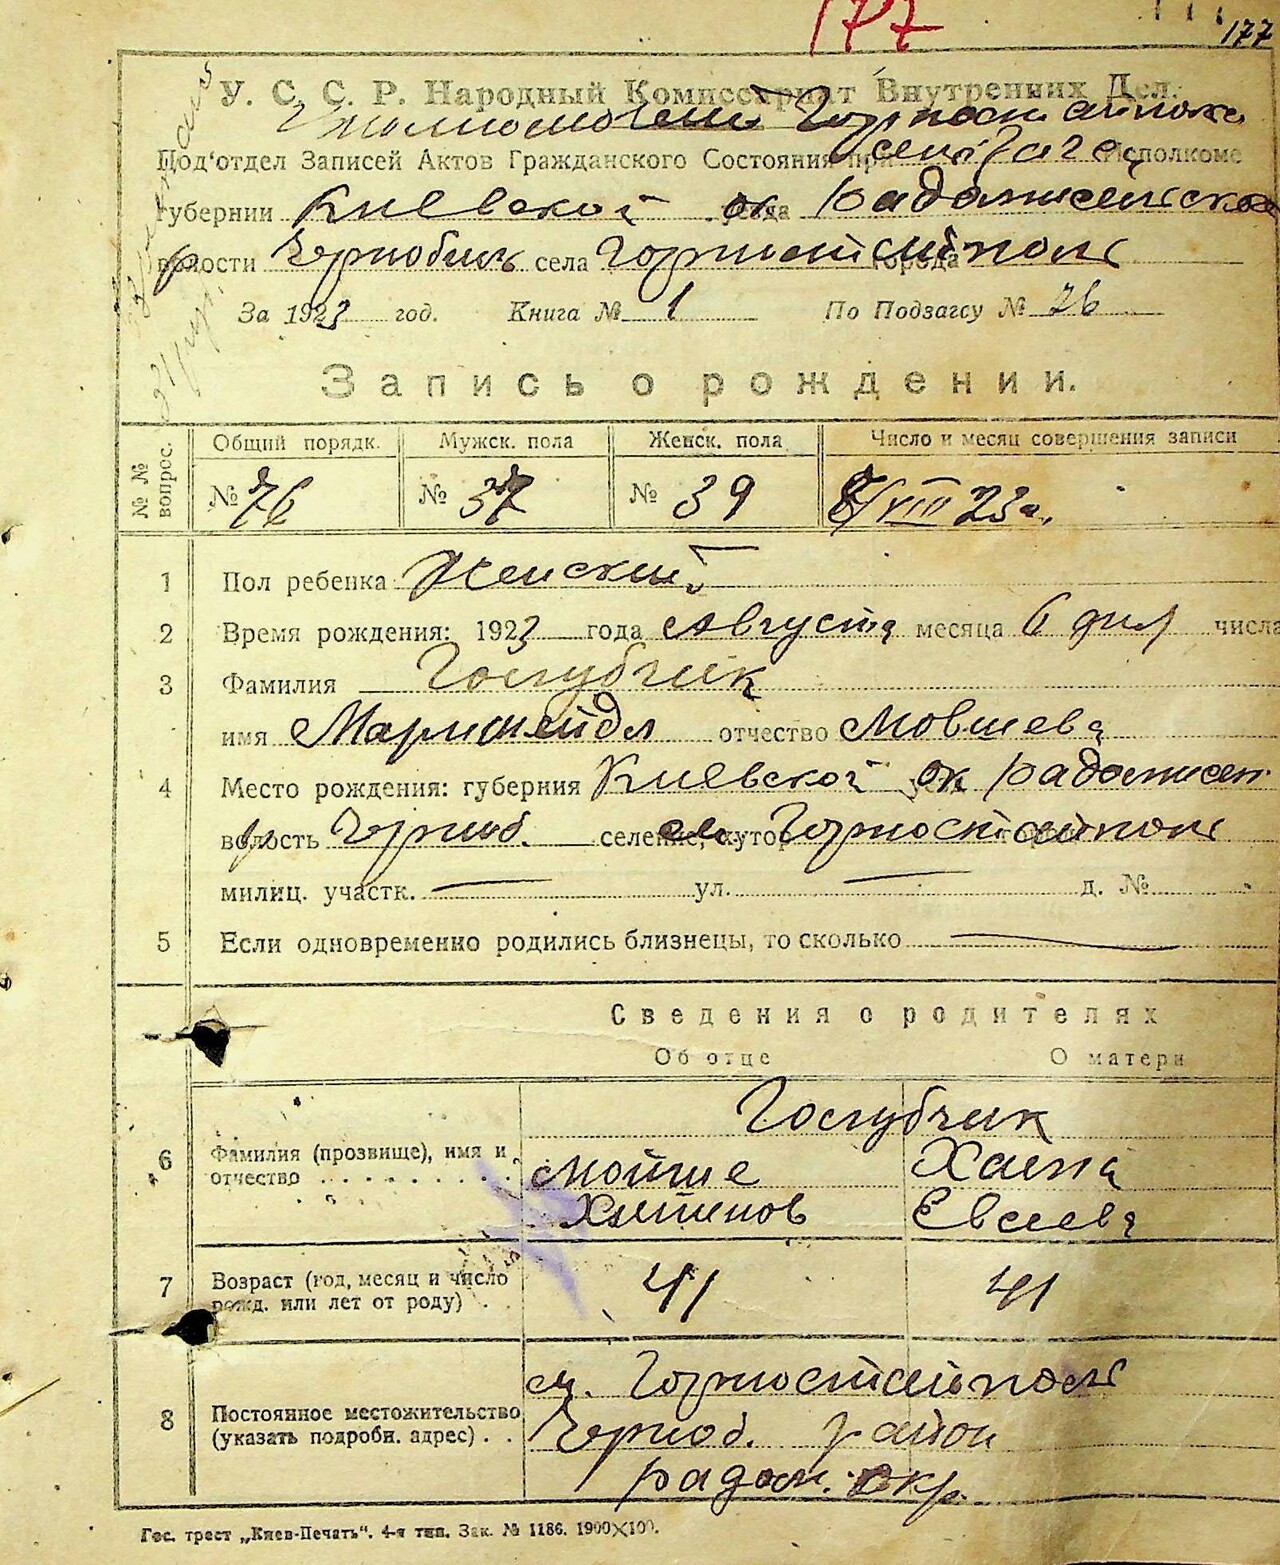 177
177
У. С. С. Р. Народный Комиссариат Внутренних Дел.
Под'отдел Записей Актов Гражданского Состояния при Исполкоме
губернии Киевской ок Радомисельской
р Чернобыль села Горностайполь
За 1923 год. Книга № 1 По Подзагсу № 76
Запись о рождении.
№ № вопрос. Общий порядк. Мужск. пола Женск. пола Число и месяц совершения записи
№ 76 № 37 № 39 8/VIII 23 г.
1 Пол ребенка Женский
2 Время рождения: 1923 года Августа месяца 6 дня числа
3 Фамилия Голубчик
имя отчество Мовшева
4 Место рождения: губерния Киевской ок Радомисел
волость Черноб. селение, хутор Горностайполь
милиц. участк. — ул. — д. №
5 Если одновременно родились близнецы, то сколько —
Сведения о родителях
Об отце О матери
Голубчик
6 Фамилия (прозвище), имя и Мойше Хаена
отчество . . . . . . . . . Хаимов Евсеева
7 Возраст (год, месяц и число 41 41
рожд. или лет от роду) . .
м. Горностайполь
8 Постоянное местожительство Черноб. район
(указать подробн. адрес) . . Радом. окр.
Гос. трест „Киев-Печать“. 4-я тип. Зак. № 1186. 1900×100.